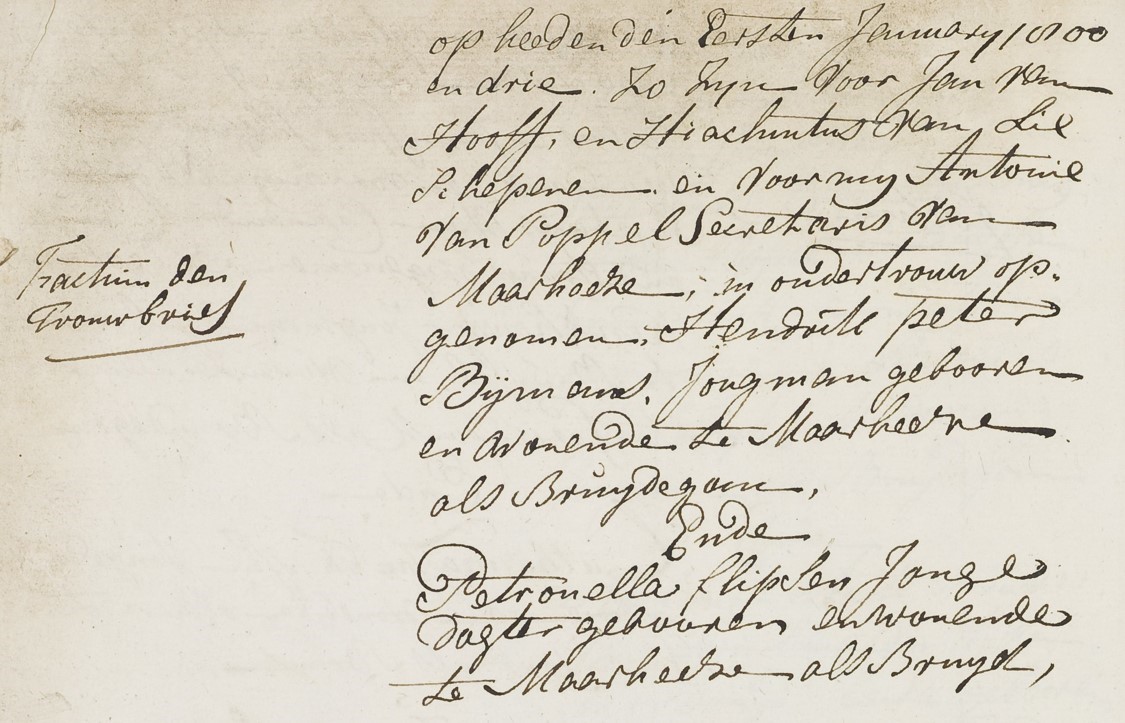 op heeden den Eersten January 1800
en drie. Zo Zyn Voor Jan van
Hooff, en Hiachintus van Lie
Schepenen en Voor my Antonie
Van Poppel Secretaris Van
Maarheeze, in ondertrouw op-
genomen, Hendrik peter
Bijmans, Jongman gebooren
en Wonende te Maarheeze
als Bruydegom,
Ende
Petronella flipsen Jonge
dogter gebooren en wonende
te Maarheeze als Bruyd,
Factum den
Trouwbrief